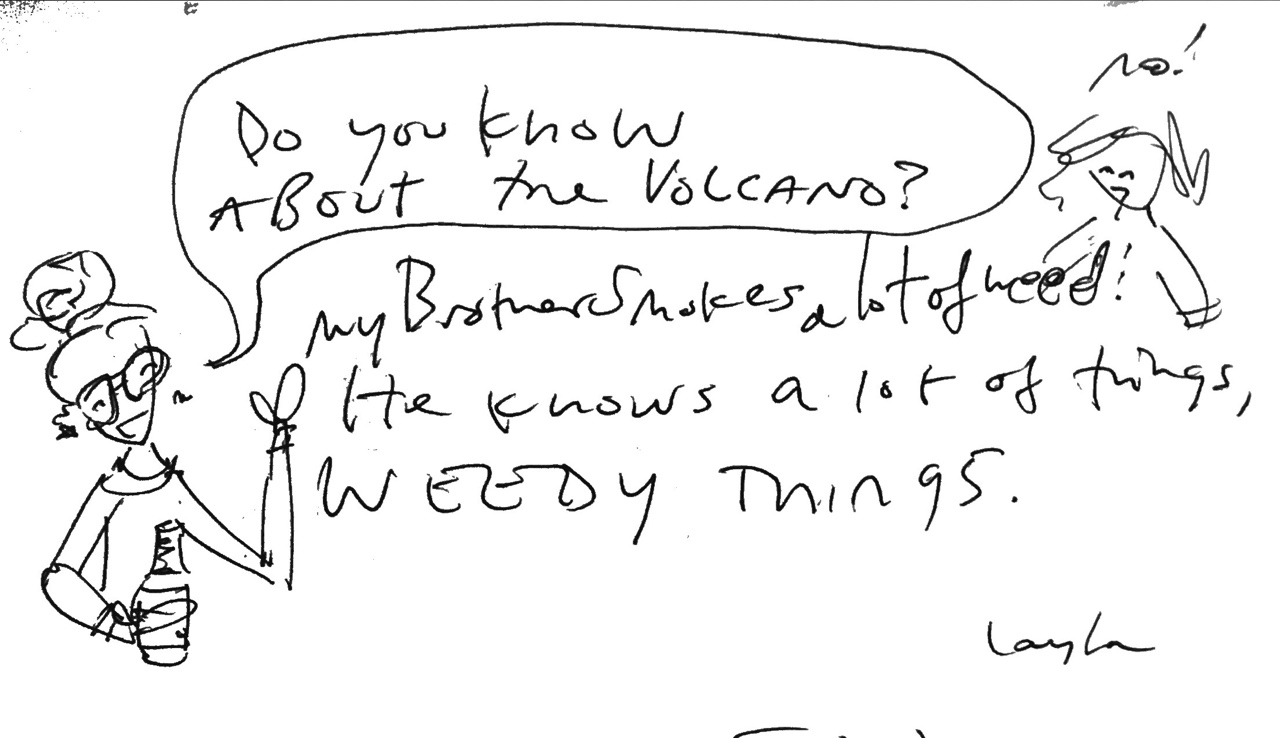 No!
Do you know
ABOUT the VOLCANO?
My Brother Smokes a lot of weed!
He knows a lot of things,
WEEDY THINGS.
Layla